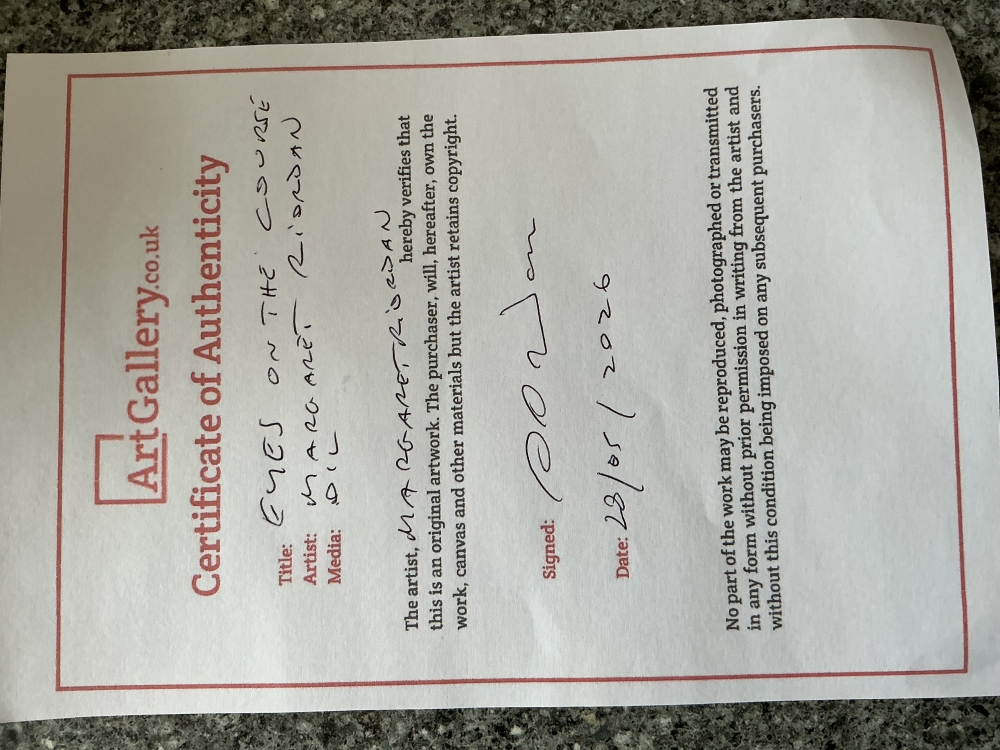 ArtGallery.co.uk
Certificate of Authenticity
Title: EYES ON THE COURSE
Artist: MARGARET RIORDAN
Media: OIL
The artist, MARGARET RIORDAN hereby verifies that
this is an original artwork. The purchaser, will, hereafter, own the
work, canvas and other materials but the artist retains copyright.
Signed:
Date: 28/05/2026
No part of the work may be reproduced, photographed or transmitted
in any form without prior permission in writing from the artist and
without this condition being imposed on any subsequent purchasers.